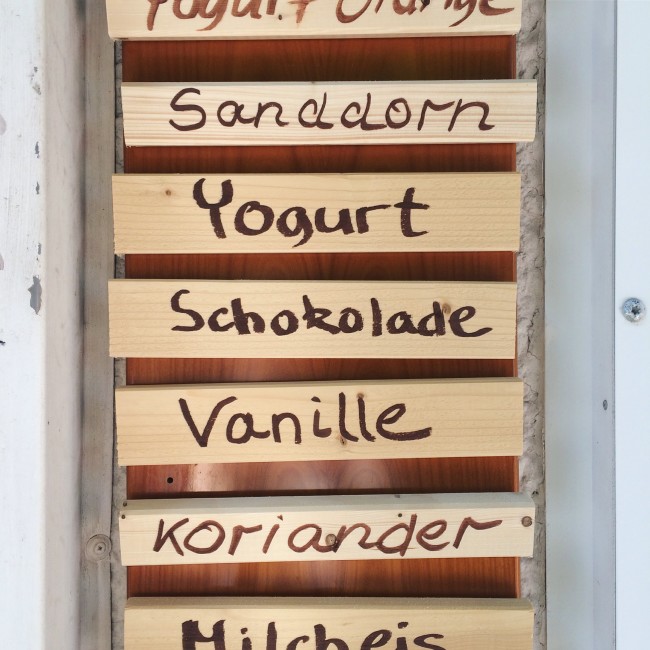 Yogurt Orange
Sanddorn
Yogurt
Schokolade
Vanille
Koriander
Milcheis